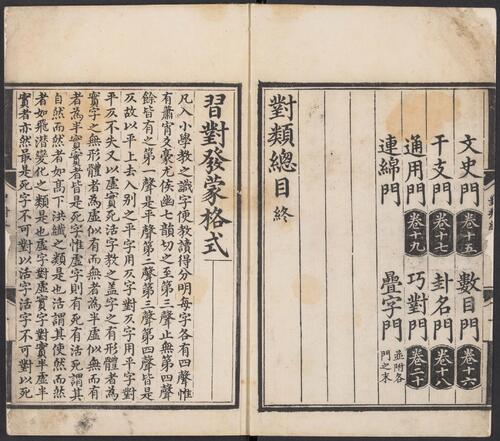 文史門 卷十五 數目門 卷十六
干支門 卷十七 卦名門 卷十八
通用門 卷十九 巧對門 卷二十
連綿門 疊字門 並附各門之末
對類總目 終
習對發蒙格式
凡入小學教之識字便教讀得分明每字各有四聲惟
有蕭宵爻豪尤侯幽七韻切之至第三聲止無第四聲
餘皆有之第一聲是平聲第二聲第三聲第四聲皆是
仄故以平上去入别之平字用仄字對仄字用平字對
平仄不失又以虛實死活字教之盖字之有形體者為
實字之無形體者為虛似有而無者為半虛似無而有
者為半實實者皆是死字惟虛字則有死有活死謂其
自然而然者如高下洪纖之類是也活謂其使然而然
者如飛潛變化之類是也虛字對虛實字對實半虛半
實者亦然最是死字不可對以活字活字不可對以死